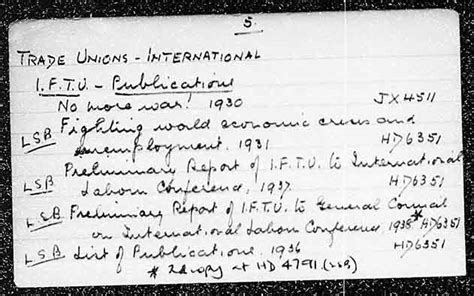 5.
TRADE UNIONS - INTERNATIONAL
I.F.T.U. - Publications
No more war! 1930 JX4511
LSB Fighting world economic crises and
unemployment. 1931 HD6351
LSB Preliminary Report of I.F.T.U. to International
Labour Conference, 1937. HD6351
LSB Preliminary Report of I.F.T.U. to General Council
on International Labour Conference 1938 * HD6351
LSB List of Publications. 1936 HD6351
* 2d copy at HD 4791.